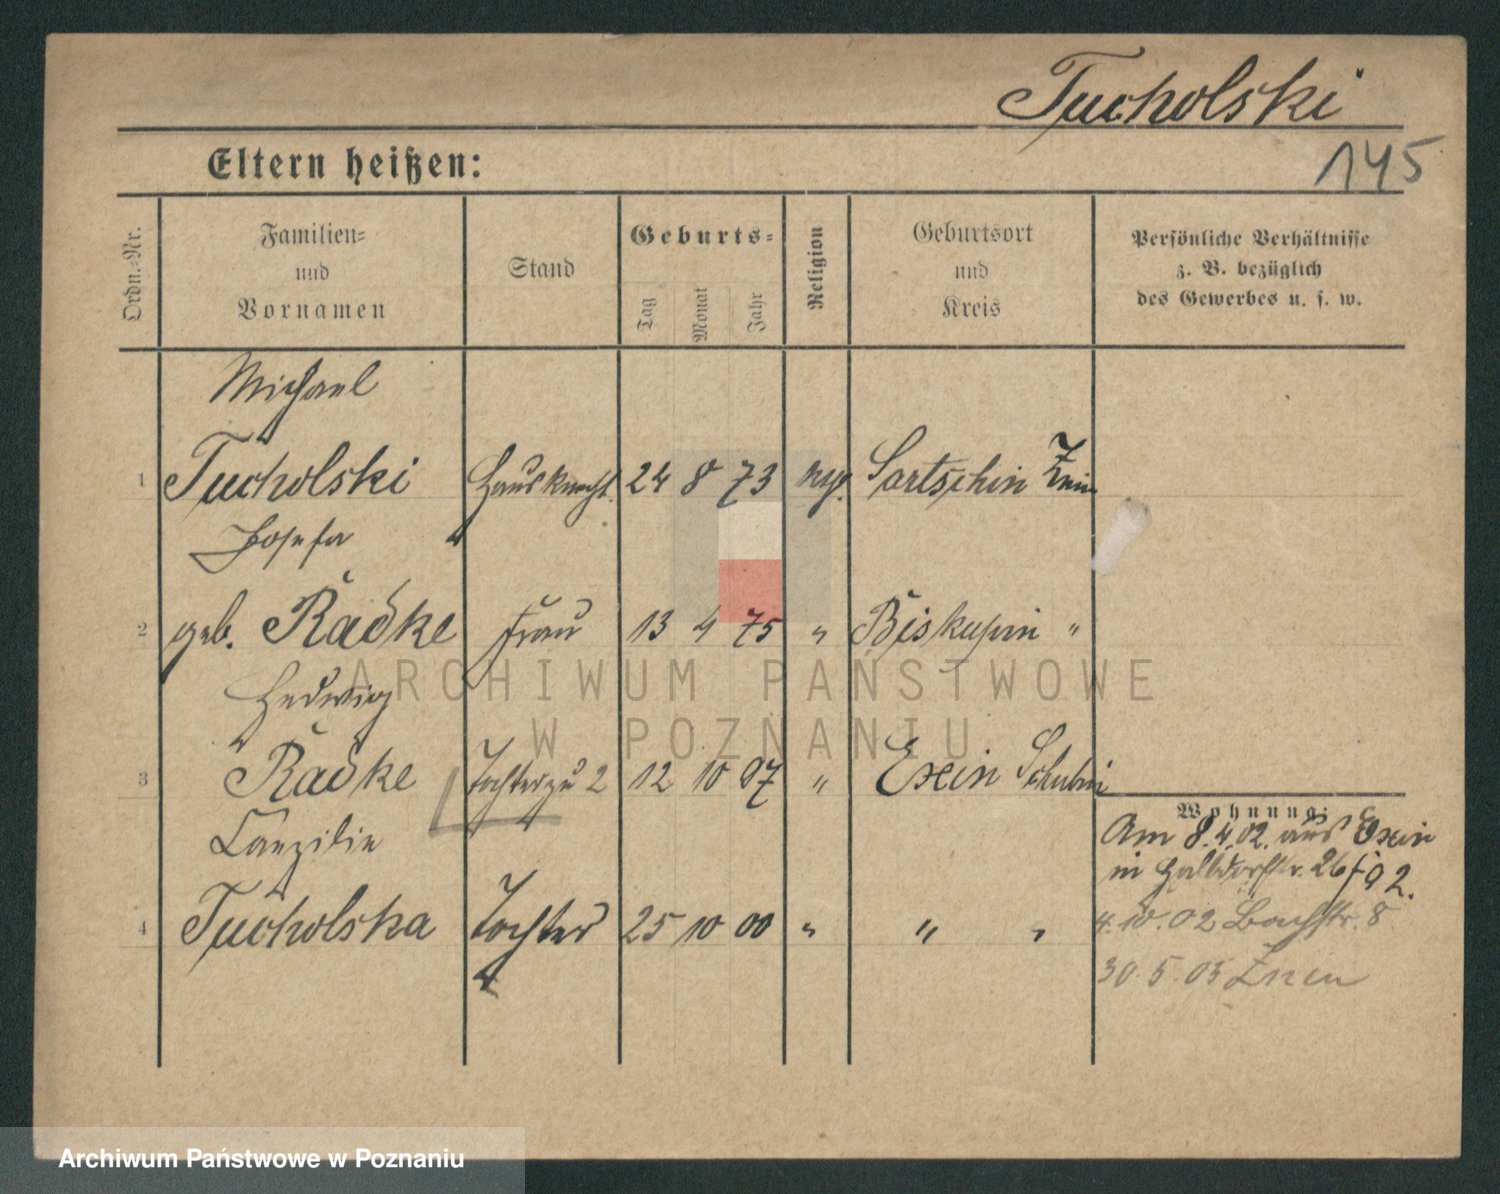 Tucholski
145
Eltern heißen:
Ordn.-Nr.
Familien-
und
Vornamen
Stand
Geburts-
Tag
Monat
Jahr
Religion
Geburtsort
und
Kreis
Persönliche Verhältnisse
z. B. bezüglich
des Gewerbes u. s. w.
Michael
1 Tucholski Hausknecht 24 8 73 Sartschin Znin
Josefa
2 geb. Radke Frau 13 4 75 " Biskupin "
Hedwig
3 Radke Tochter zu 2 12 10 97 " Exin Schubin
Wohnung:
Cäcilie
Am 8.4.02. aus Exin
in Halbdorfstr. 26
4 Tucholska Tochter 25 10 00 " " "
4.10.02 Bachstr. 8
30.5.03 Znin
ARCHIWUM PAŃSTWOWE
W POZNANIU
Archiwum Państwowe w Poznaniu